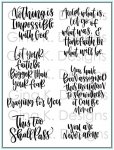 Nothing is
Impossible
with God
Let your
faith Be
Bigger than
your fear
Praying for You
This too
Shall Pass
Accept what is,
Let go of
what was, &
have faith in
what will be.
You have
Been assigned
this mountain
to show others
it can Be
moved!
You are
Never alone